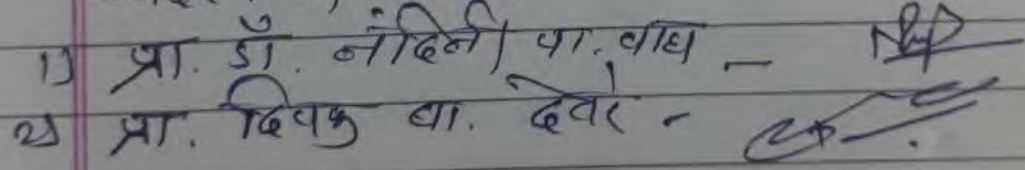 1) प्रा. डॉ. नंदिनी पा. वाघ -
2) प्रा. दिपक बा. देवरे -